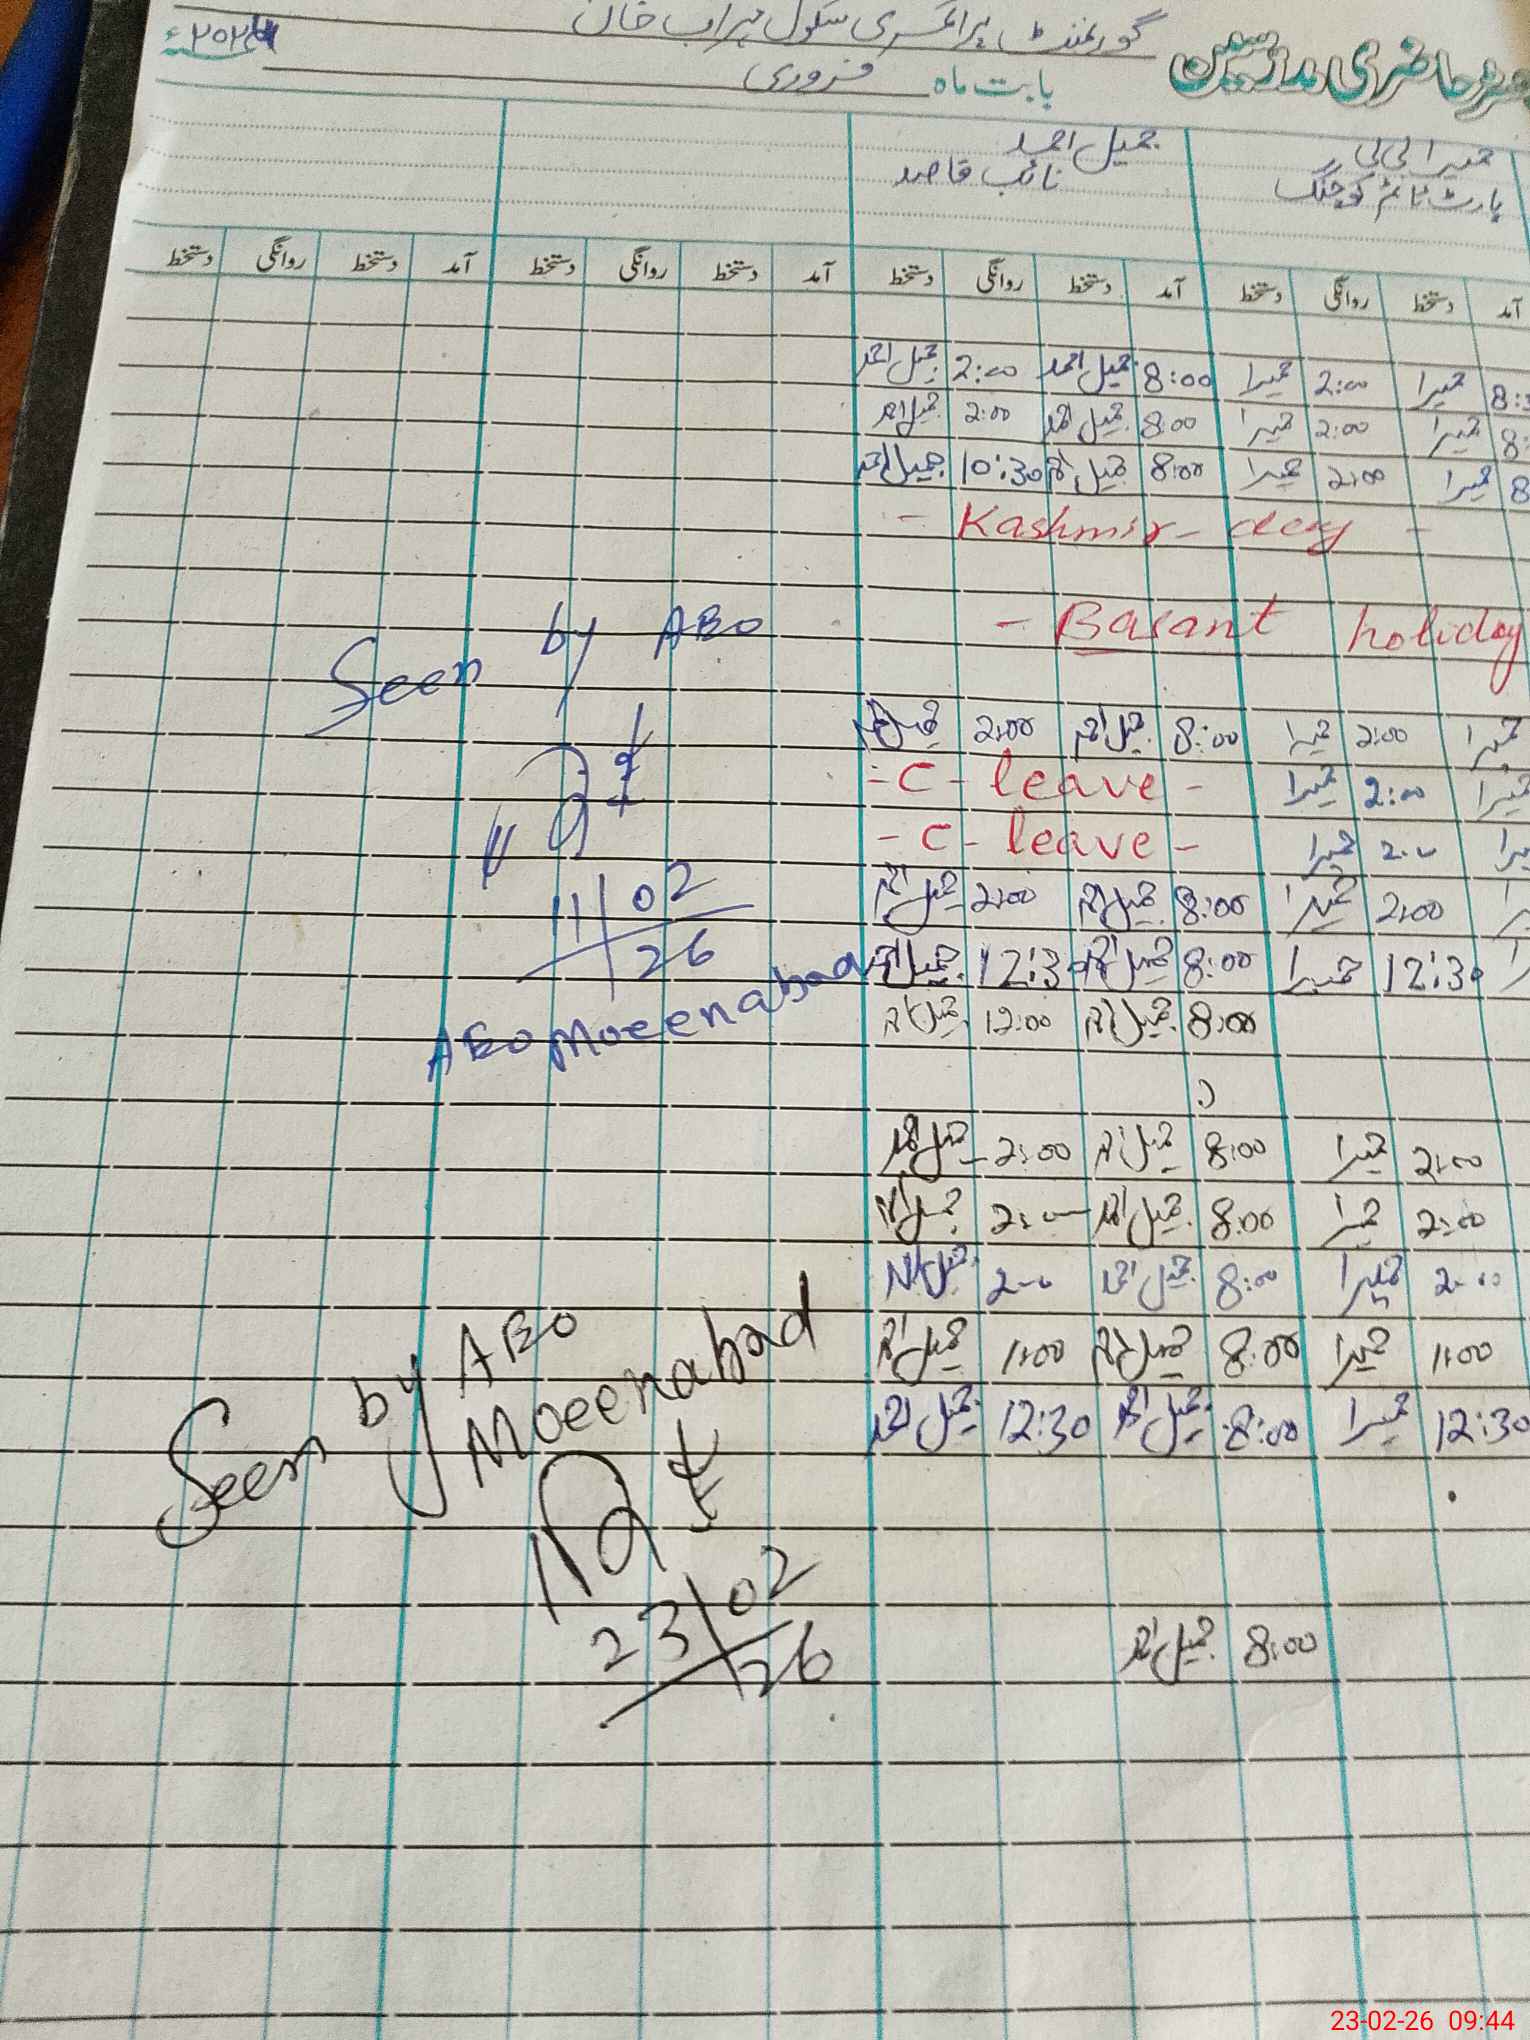 حاضری مدرسین گورنمنٹ پرائمری سکول سہراب خان
بابت ماہ فروری
حمیرا بی بی جمیل احمد
پارٹ ٹائم کوچنگ نائب قاصد
آمد دستخط روانگی دستخط آمد دستخط روانگی دستخط آمد دستخط روانگی دستخط آمد دستخط روانگی دستخط
حمیرا 2:00 حمیرا 8:00 جمیل احمد 2:00 جمیل احمد
حمیرا 2:00 حمیرا 8:00 جمیل احمد 2:00 جمیل احمد
حمیرا 2:00 حمیرا 8:00 جمیل احمد 10:30 جمیل احمد
- Kashmir - day -
- Basant holiday
Seen by AEO
حمیرا 2:00 حمیرا 8:00 جمیل احمد 2:00 جمیل احمد
حمیرا 2:00 حمیرا - C - leave -
حمیرا 2:00 حمیرا - C - leave -
2:00 حمیرا 8:00 جمیل احمد 2:00 جمیل احمد
11/02
26
12:30 حمیرا 8:00 جمیل احمد 12:30 جمیل احمد
8:00 جمیل احمد 12:00 جمیل احمد
AEO Moeenabad
2:00 حمیرا 8:00 جمیل احمد 2:00 جمیل احمد
2:00 حمیرا 8:00 جمیل احمد 2:00 جمیل احمد
2:00 حمیرا 8:00 جمیل احمد 2:00 جمیل احمد
11:00 حمیرا 8:00 جمیل احمد 11:00 جمیل احمد
12:30 حمیرا 8:00 جمیل احمد 12:30 جمیل احمد
Seen by AEO
Moeenabad
23/02
26
8:00 جمیل احمد
23-02-26 09:44